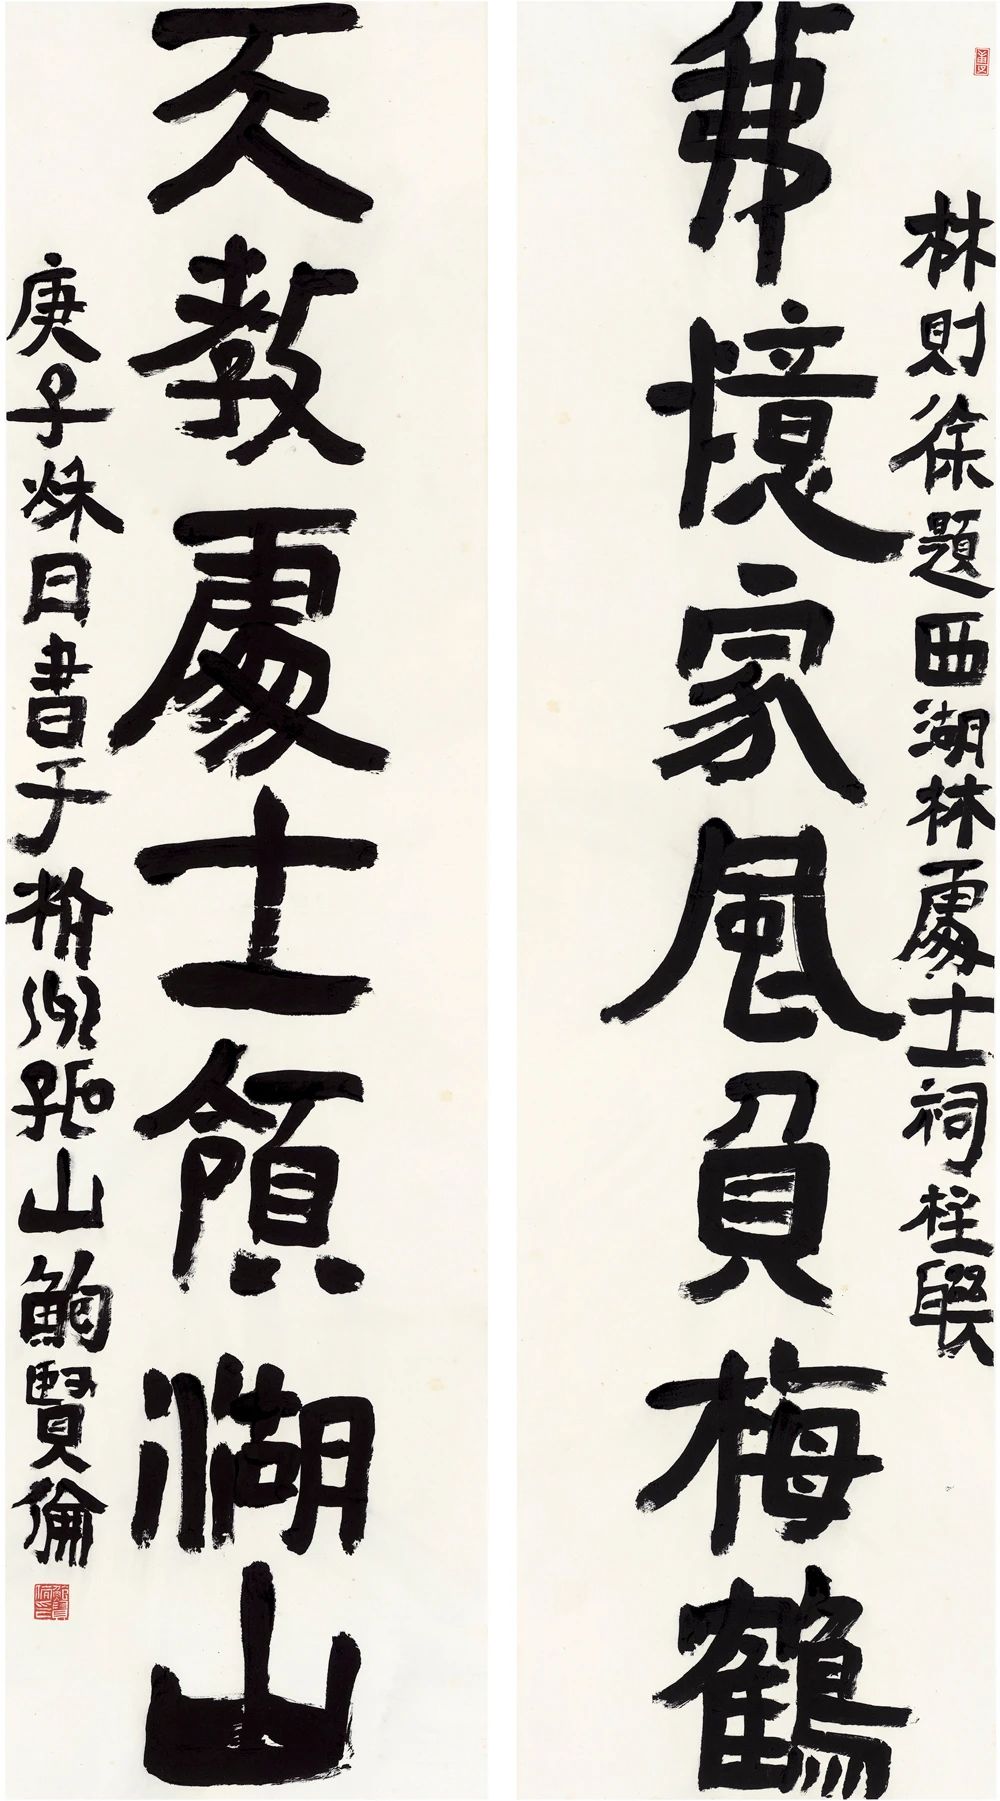 林則徐題西湖林處士祠柱聯
我憶家風負梅鶴
天教處士領湖山
庚子秌日書于山鮑賢倫